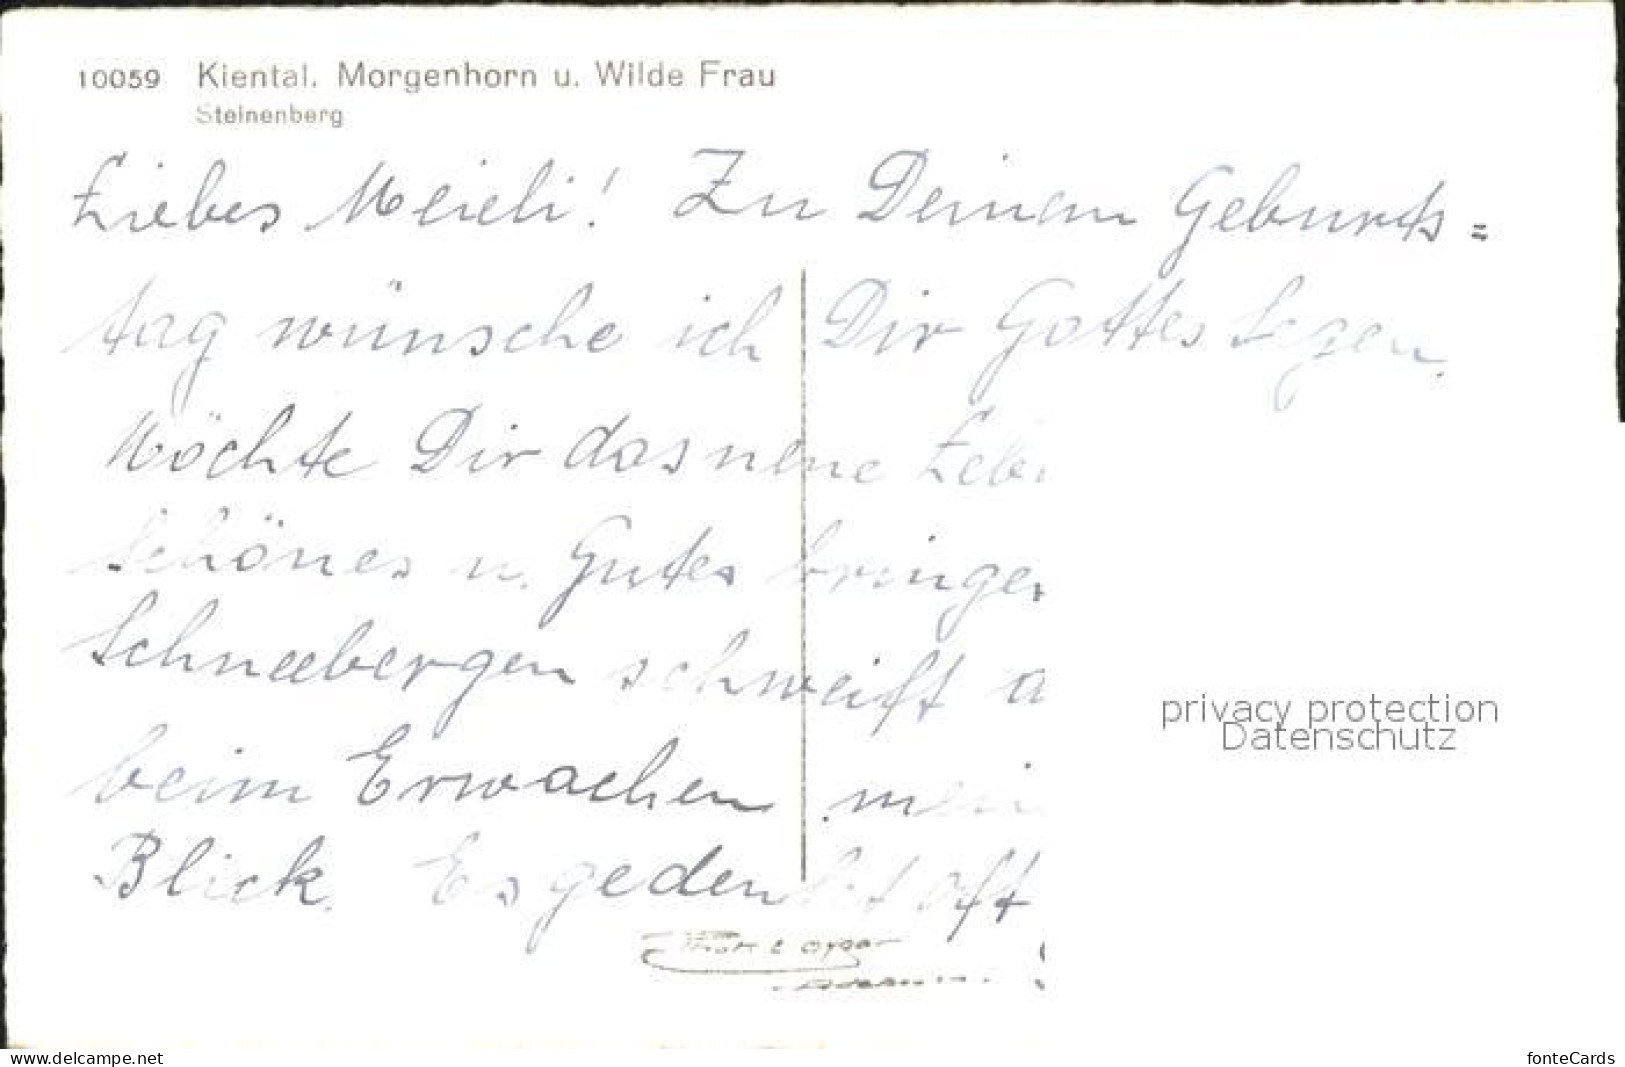 10059 Kiental. Morgenhorn u. Wilde Frau
Steinenberg
Liebes Meieli! Zu Deinem Geburts=
tag wünsche ich Dir Gottes Segen.
Möchte Dir das neue
Schönes u. Gutes bringen
Schneebergen schweift
beim Erwachen mein
Blick. Es gedenkt oft
privacy protection
Datenschutz
www.delcampe.net
fonteCards